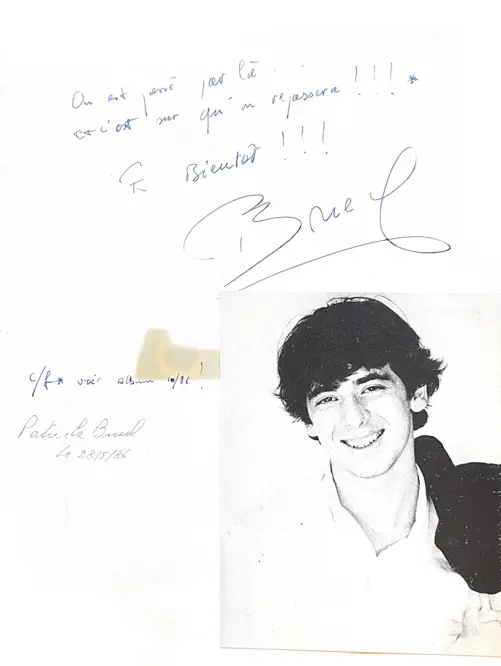 On est passé par là ...
et c'est sur qu'on repassera !!! *
A Bientot !!!
Bruel
c/f * voir album 10/86 !
Patrick Bruel
le 28/5/86